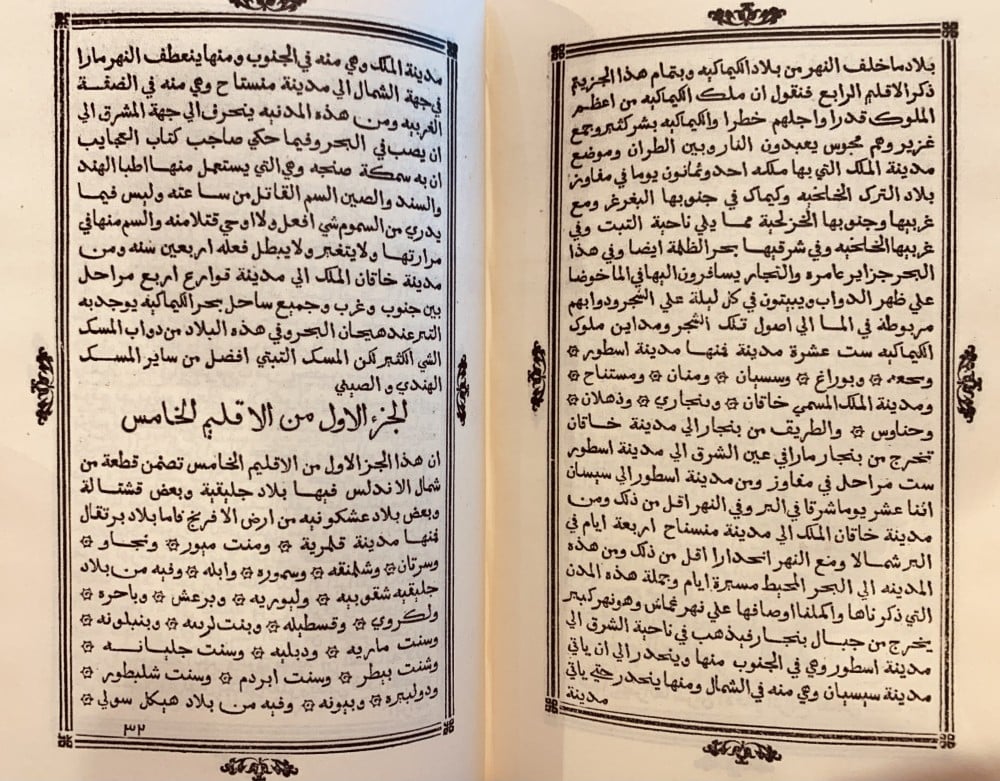 بلاد ما خلف النهر من بلاد الكيماكيه وبتمام هذا الجزء يتم
ذكر الاقليم الرابع فنقول ان ملك الكيماكيه من اعظم
الملوك قدرا واجلهم خطرا والكيماكيه بشر كثير وجمع
غزير وهم مجوس يعبدون النار وبين الطران وموضع
مدينة الملك التي بها ملكه احد وثمانون يوما في مفاوز
بلاد الترك الخلخيه وكيماك في جنوبها البغرغر ومع
غربيها وجنوبها الخزلجية مما يلي ناحية التبت وفي
غربيها الخلخيه وفي شرقيها بحر الظلمة ايضا وفي هذا
البحر جزاير عامره والتجار يسافرون اليها في الما خوضا
علي ظهر الدواب ويبيتون في كل ليلة علي الشجر ودوابهم
مربوطة في الما الي اصول تلك الشجر ومداين ملوك
الكيماكيه ست عشرة مدينة فمنها مدينة اسطور ۞
۞ وبوراغ ۞ وسسيان ۞ ومنان ۞ ومستناح ۞
ومدينة الملك المسمي خاقان ۞ وبنجاري ۞ وذهلان ۞
وحناوس ۞ والطريف من بنجار الي مدينة خاقان
تخرج من بنجار مارا في عين الشرق الي مدينة اسطور
ست مراحل في مفاوز ومن مدينة اسطور الي سيسان
اثنا عشر يوما شرقا في البر وفي النهر اقل من ذلك ومن
مدينة خاقان الملك الي مدينة منسناح اربعة ايام في
البر شمالا ومع النهر انحدارا اقل من ذلك ومن هذه
المدينه الي البحر المحيط مسيرة ايام وجملة هذه المدن
التي ذكرناها واكملنا اوصافها علي نهر غماش وهو نهر كبير
يخرج من جبال بنجار فيذهب في ناحية الشرق الي
مدينة اسطور وهي في الجنوب منها وينحدر الي ان ياتي
مدينة سيسيان وهي منه في الشمال ومنها ينحدر حتي ياتي
مدينة
مدينة الملك وهي منه في الجنوب ومنها ينعطف النهر مارا
في جهة الشمال الي مدينة منستاح وهي منه في الضفة
الغربيه ومن هذه المدنيه ينحرف الي جهة المشرق الي
ان يصب في البحر وفيما حكي صاحب كتاب العجايب
ان به سمكة صنجه وهي التي يستعمل منها اطبا الهند
والسند والصين السم القاتل من ساعته وليس فيما
يدري من السموم شي افعل ولا اوحي قتلا منه والسم منها في
مرارتها ولا يتغير ولا يبطل فعله اربعين سنه ومن
مدينة خاقان الملك الي مدينة قوارع اربع مراحل
بين جنوب وغرب وجميع ساحل بحر الكيماكيه يوجد به
التبر عند هيجان البحر وفي هذه البلاد من دواب المسك
الشي الكثير لكن المسك التبتي افضل من ساير المسك
الهندي والصيني
الجزء الاول من الاقليم الخامس
ان هذا الجز الاول من الاقليم الخامس تضمن قطعة من
شمال الاندلس فيها بلاد جليقية وبعض قشتالة
وبعض بلاد عشكونيه من ارض الافرنج فاما بلاد برتقال
فمنها مدينة قلمرية ۞ ومنت ميور ۞ ونجاو ۞
وسرتان ۞ وشلمنقه ۞ وسموره ۞ وابله ۞ وفيه من بلاد
جليقيه شقوبيه ۞ وليوريه ۞ وبرعش ۞ وباحره ۞
ولكروي ۞ وقسطيله ۞ وبنت لرينه ۞ وبنبلونه ۞
وسنت ماريه ۞ ودبليه ۞ وسنت جليانه ۞
وشنت بيطر ۞ وسنت ابردم ۞ وسنت شلبطور ۞
ودوليبره ۞ وبيونه ۞ وفيه من بلاد هيكل سولي ۞
٣٢